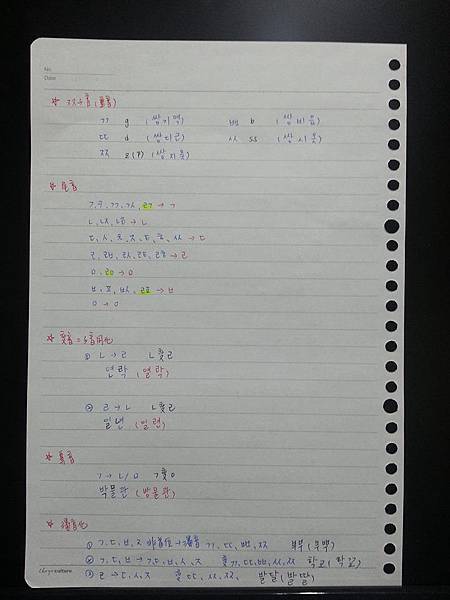 No.
Date
☆ 双子音(重音)
ㄲ g (쌍기역) ㅃ b (쌍비읍)
ㄸ d (쌍디귿) ㅆ ss (쌍시옷)
ㅉ z(?) (쌍지읒)
☆ 尾音
ㄱ,ㅋ,ㄲ,ㄳ,ㄺ → ㄱ
ㄴ,ㄵ,ㄶ → ㄴ
ㄷ,ㅅ,ㅊ,ㅈ,ㅌ,ㅎ,ㅆ → ㄷ
ㄹ,ㄼ,ㄽ,ㄾ,ㅀ → ㄹ
ㅁ,ㄻ → ㅁ
ㅂ,ㅍ,ㅄ,ㄿ → ㅂ
ㅇ → ㅇ
☆ 變音 = 子音同化
① ㄴ → ㄹ ㄴ變ㄹ
연락 (열락)
② ㄹ → ㄴ
일년 (일련)
☆ 鼻音
ㄱ → ㄴ/ㅇ ㄱ變ㅇ
박물관 (방물관)
☆ 硬音化
① ㄱ,ㄷ,ㅂ,ㅈ ㄲ,ㄸ,ㅃ,ㅉ
② ㄱ,ㄷ,ㅂ → ㄱ,ㄷ,ㅂ,ㅅ,ㅈ 變 ㄲ,ㄸ,ㅃ,ㅆ,ㅉ 학교(학꾜)
③ ㄹ → ㄷ,ㅅ,ㅈ 變 ㄸ,ㅆ,ㅉ 발달(발딸)